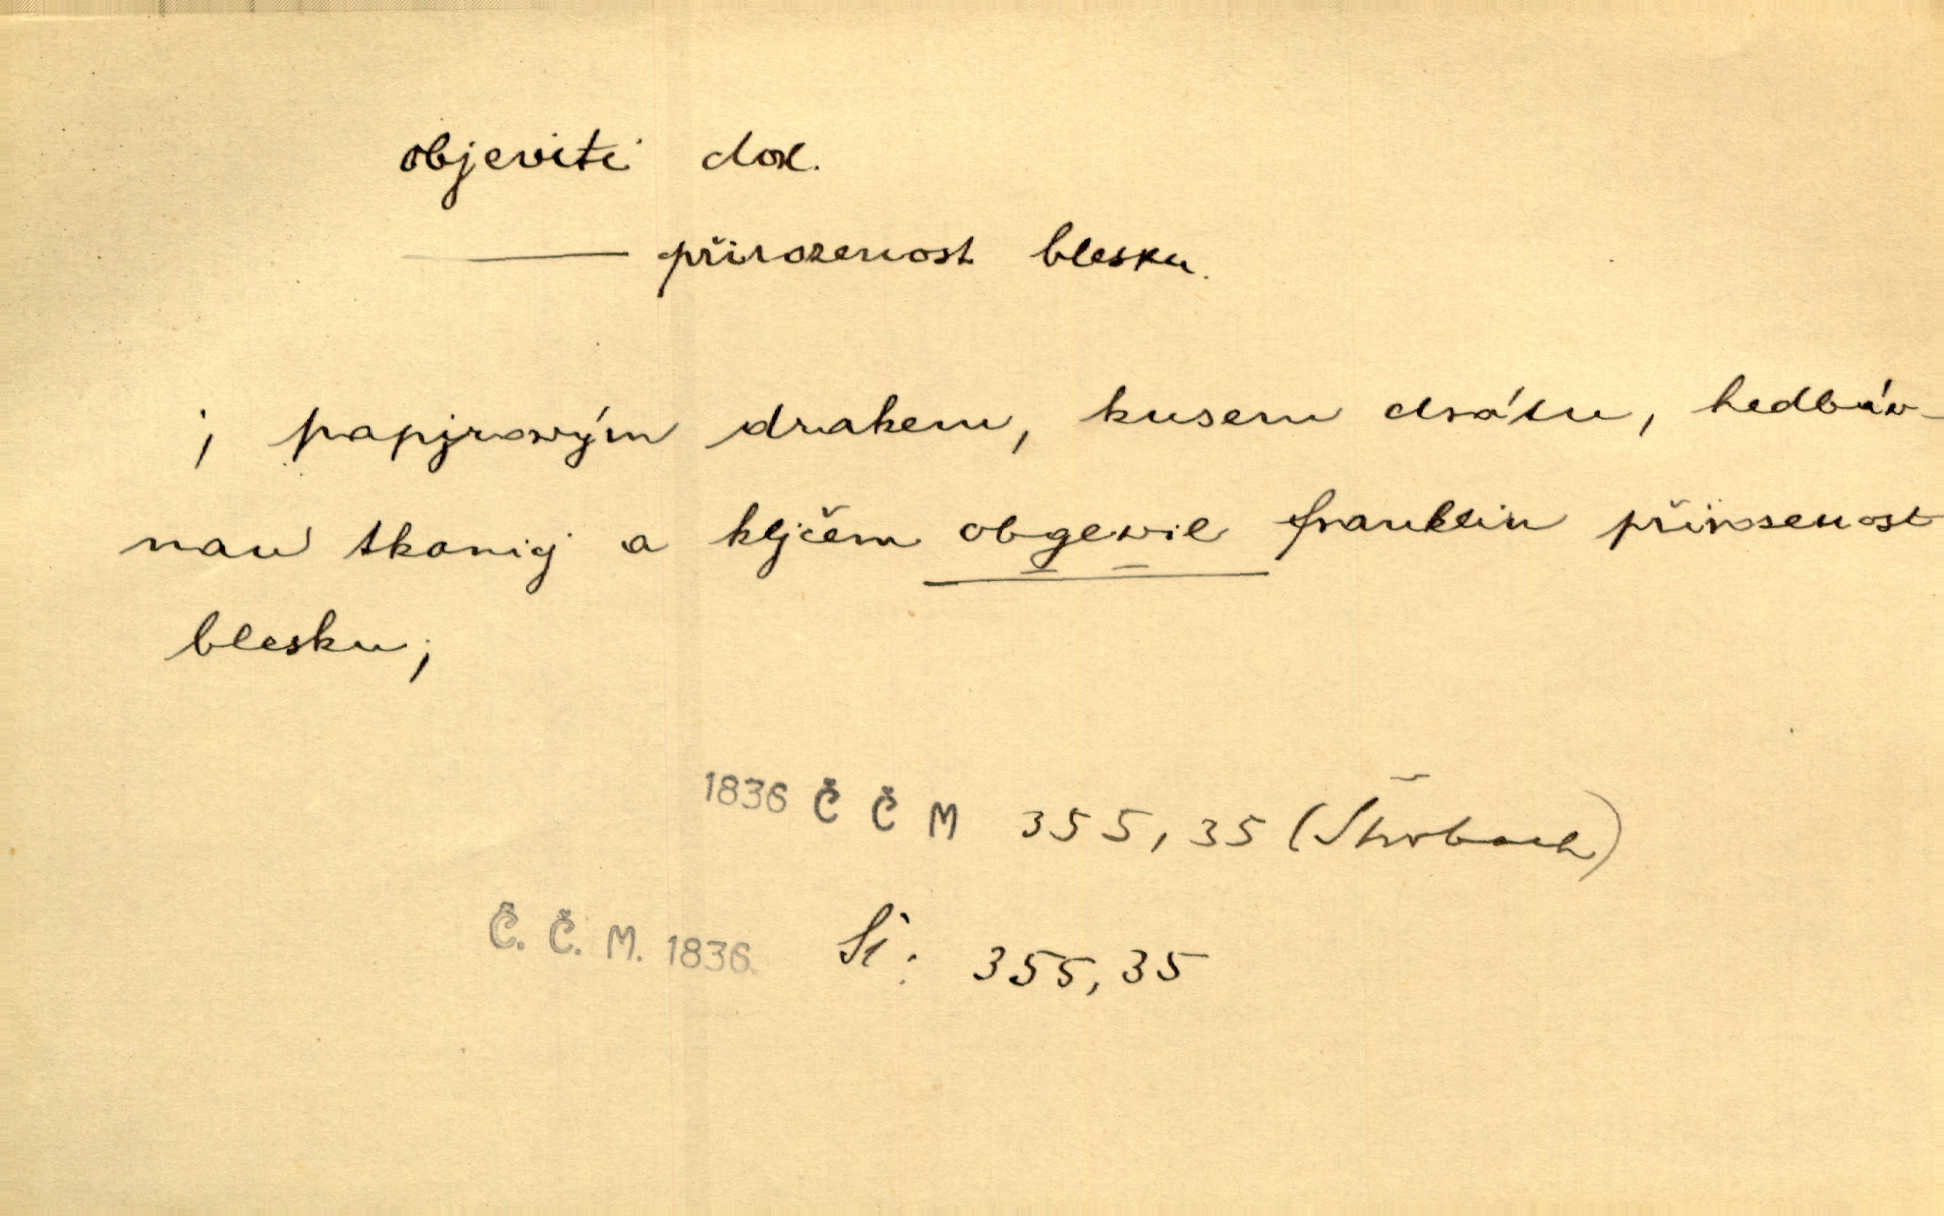 objeviti dok.
——— přirozenost blesku.
; papjrowým drakem, kusem drátu, hedbáv-
nau tkanicj a kljčem obgewil Franklin přirozenost
blesku;
1836 Č Č M 355, 35 (Štrobach)
Č. Č. M. 1836. Si: 355, 35